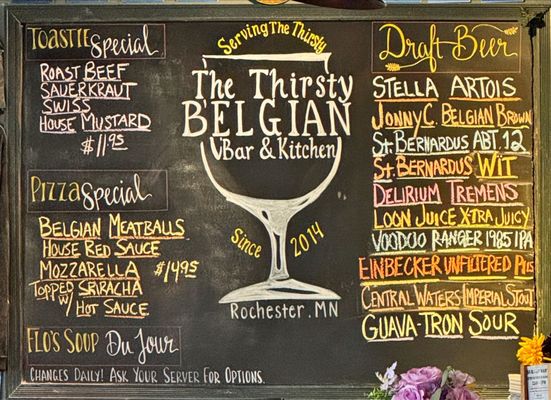 Toastie Special
Roast Beef
Sauerkraut
Swiss
House Mustard
$11.95
Pizza Special
Belgian Meatballs
House Red Sauce
Mozzarella $14.95
Topped w/ Sriracha
Hot Sauce
Flo's Soup Du Jour
Changes Daily! Ask Your Server For Options.
Serving The Thirsty
The Thirsty
Belgian
Bar & Kitchen
Since 2014
Rochester. MN
Draft Beer
Stella Artois
Jonny C. Belgian Brown
St. Bernardus Abt. 12
St. Bernardus Wit
Delirium Tremens
Loon Juice X-tra Juicy
Voodoo Ranger 1985 IPA
Einbecker Unfiltered Pils
Central Waters Imperial Stout
Guava-Tron Sour